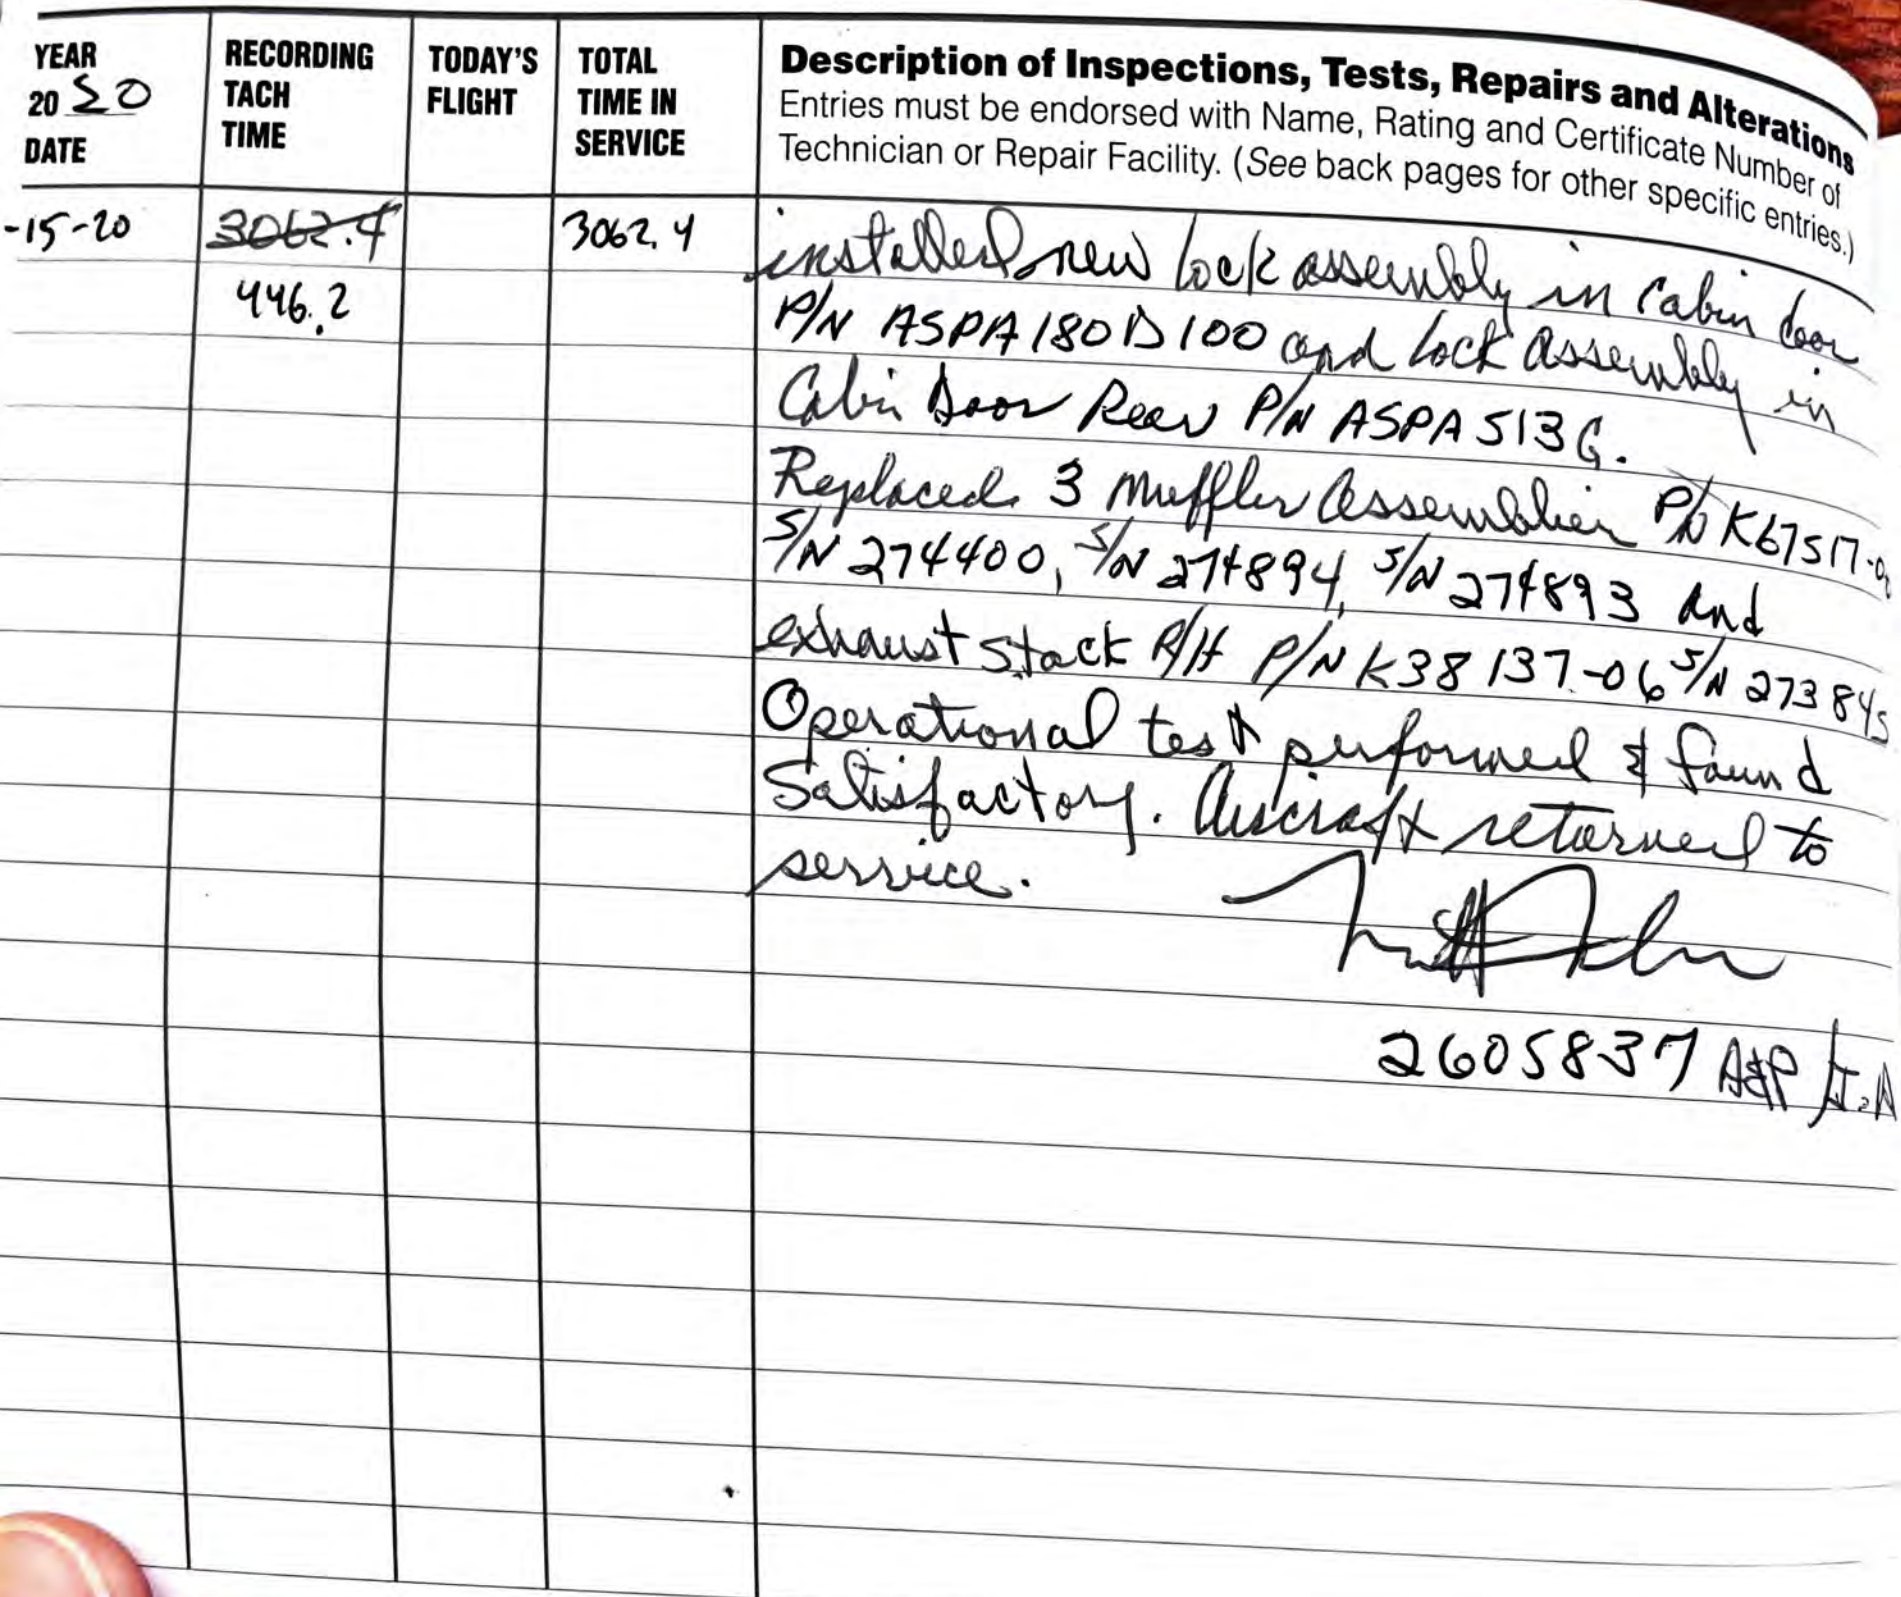 YEAR
20 20
DATE
RECORDING
TACH
TIME
TODAY'S
FLIGHT
TOTAL
TIME IN
SERVICE
Description of Inspections, Tests, Repairs and Alterations
Entries must be endorsed with Name, Rating and Certificate Number of
Technician or Repair Facility. (See back pages for other specific entries.)
-15-20
3062.4
446.2
3062.4
installed new lock assembly in cabin door
P/N ASPA180D100 and lock assembly in
Cabin Door Rear P/N ASPA513G.
Replaced 3 muffler assemblies P/N K67517-0
S/N 274400, S/N 274894, S/N 274893 and
exhaust stack R/H P/N K38137-06 S/N 273845
Operational test performed & found
Satisfactory. Aircraft returned to
service.
2605837 A&P/I.A